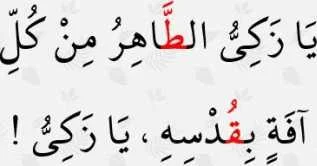 يَا زَكِىُّ الطَّاهِرُ مِنْ كُلِّ
آفَةٍ بِقُدْسِهِ ، يَا زَكِىُّ !